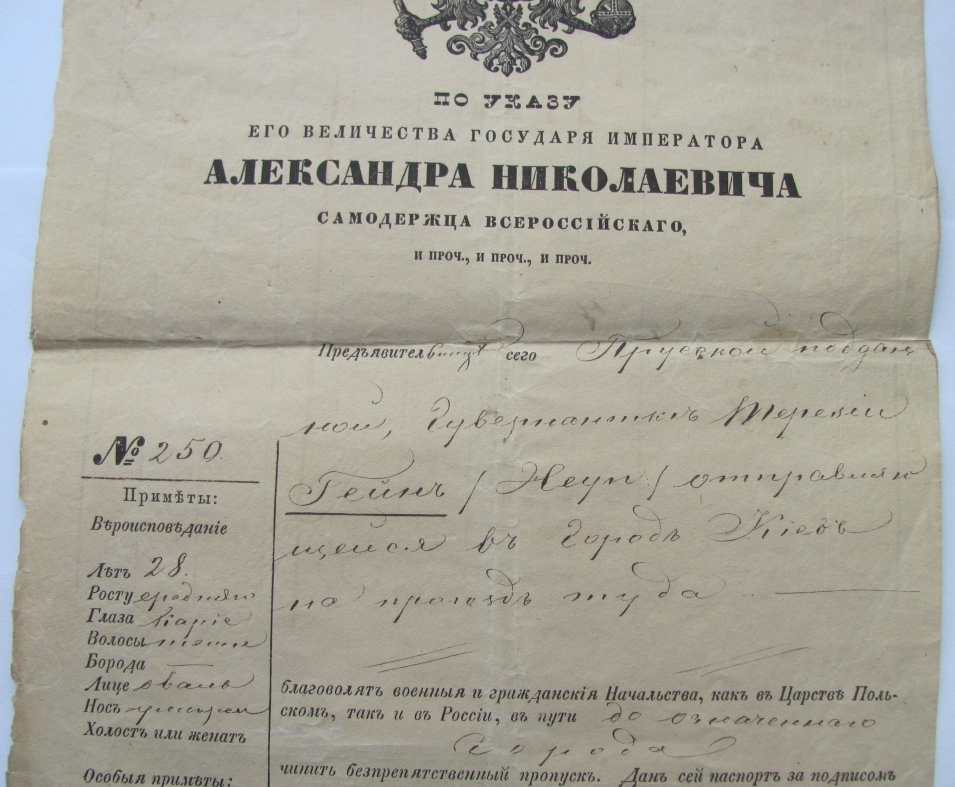 ПО УКАЗУ
ЕГО ВЕЛИЧЕСТВА ГОСУДАРЯ ИМПЕРАТОРА
АЛЕКСАНДРА НИКОЛАЕВИЧА
САМОДЕРЖЦА ВСЕРОССІЙСКАГО,
И ПРОЧ., И ПРОЧ., И ПРОЧ.
Предъявительницѣ сего Прусской поддан
ной, Гувернанткѣ Терезіи
Гейнъ / Heyn / отправляю
щейся въ Городъ Кіевъ
на проѣздъ туда
№ 250.
Примѣты:
Вѣроисповѣданіе
Лѣтъ 28.
Росту средняго
Глаза каріе
Волосы темные
Борода —
Лице овалъ
Носъ
Холостъ или женатъ
Особыя примѣты:
благоволятъ военныя и гражданскія Начальства, какъ въ Царствѣ Поль-
скомъ, такъ и въ Россіи, въ пути до означеннаго
города
чинить безпрепятственный пропускъ. Данъ сей паспортъ за подписомъ